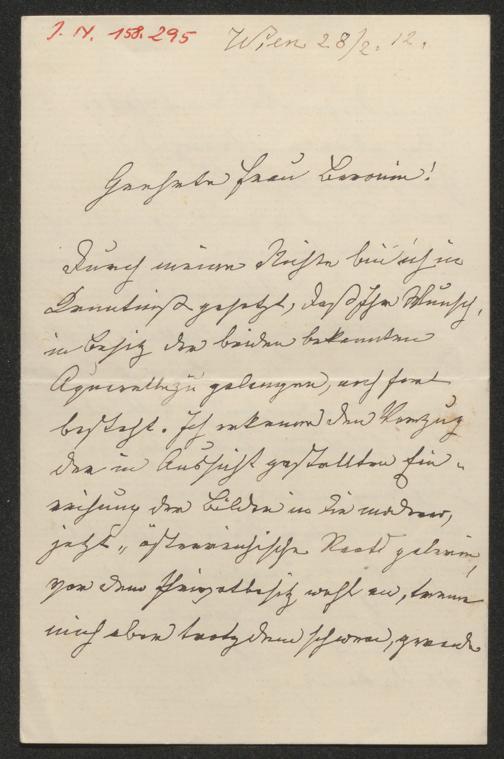 J. N. 158.295
Wien 28/2. 12.
Geehrte Frau Baronin!
Durch meine Nichte bin ich in
Kenntniß gesetzt, daß Ihr Wunsch,
in Besitz der beiden bekannten
Aquarelle zu gelangen, noch fort
besteht. Ich erkenne den Vorzug
der in Aussicht gestellten Ein-
reihung der Bilder in die moderne,
jetzt „österreichische Staats galerie,
vor dem Privatbesitz wohl an, trenne
mich aber trotzdem schwer, gerade